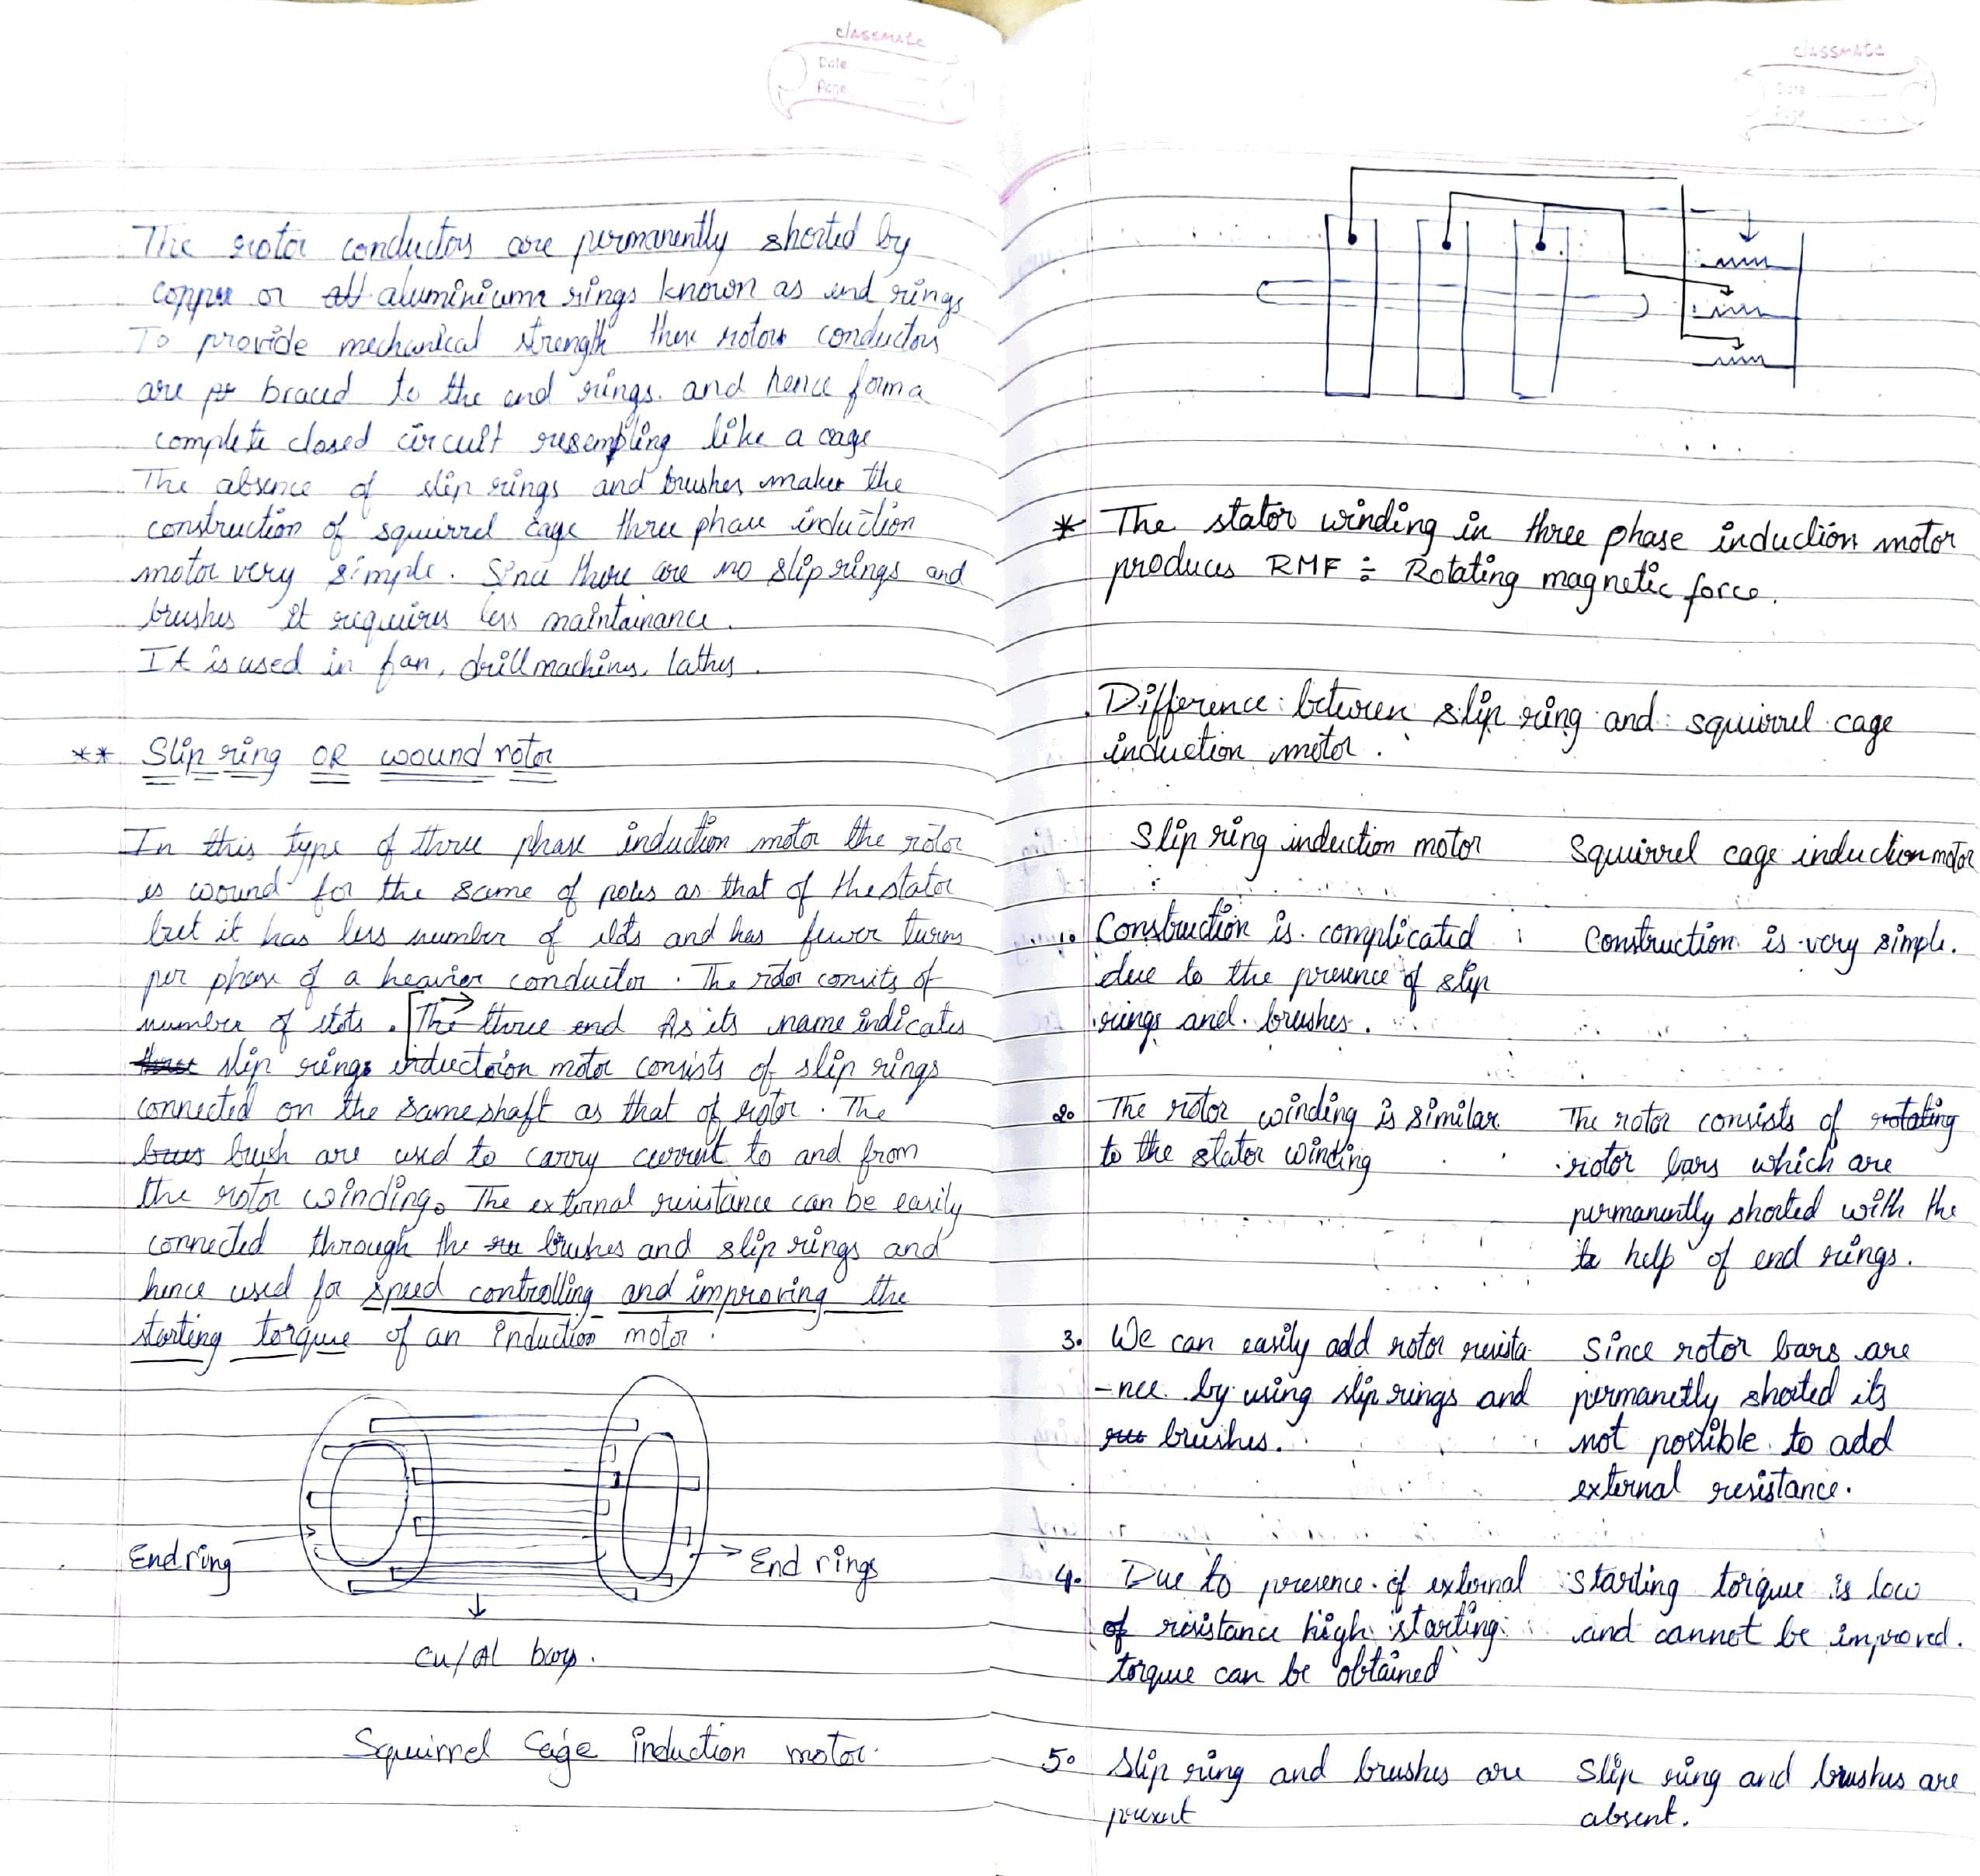 classmate
Date
Page
The rotor conductors are permanently shorted by
copper or aluminium rings known as end rings
To provide mechanical strength these rotors conductors
are braced to the end rings. and hence form a
complete closed circuit resempling like a cage
The absence of slip rings and brushes makes the
construction of squirrel cage three phase induction
motor very simple. Since there are no slip rings and
brushes it requires less maintainance.
It is used in fan, drill machines, lathes.
** Slip ring OR wound rotor
In this type of three phase induction motor the rotor
is wound for the same of poles as that of the stator
but it has less number of slots and has fewer turns
per phase of a heavier conductor. The rotor consits of
number of slots. The three end As its name indicates
slip rings induction motor consists of slip rings
connected on the same shaft as that of rotor. The
brush are used to carry current to and from
the rotor winding. The external resistance can be easily
connected through the brushes and slip rings and
hence used for speed controlling and improving the
starting torque of an induction motor.
End ring
End rings
Cu/Al bars.
Squirrel Cage induction motor.
classmate
Date
Page
* The stator winding in three phase induction motor
produces RMF÷ Rotating magnetic force.
Difference between slip ring and squirrel cage
induction motor.
Slip ring induction motor Squirrel cage induction motor
1. Construction is complicated Construction is very simple.
due to the presence of slip
rings and brushes.
2. The rotor winding is similar The rotor consists of rotating
to the stator winding rotor bars which are
permanently shorted with the
help of end rings.
3. We can easily add rotor resista- Since rotor bars are
-nce by using slip rings and permanetly shorted its
brushes. not postible to add
external resistance.
4. Due to presence of external starting torque is low
of resistance high starting and cannot be improved.
torque can be obtained
5. Slip ring and brushes are Slip ring and brushes are
present absent.